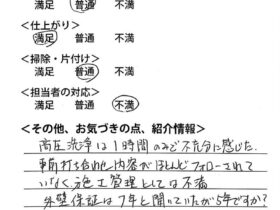 満足 普通 不満
<仕上がり>
満足 普通 不満
<掃除・片付け>
満足 普通 不満
<担当者の対応>
満足 普通 不満
<その他、お気づきの点、紹介情報>
高圧洗浄は1時間のみで不充分に感じた.
事前打ち合わせ内容がほとんどフォローされて
いなく、施工管理としては不満
外壁保証は7年と聞いていたが5年ですか?